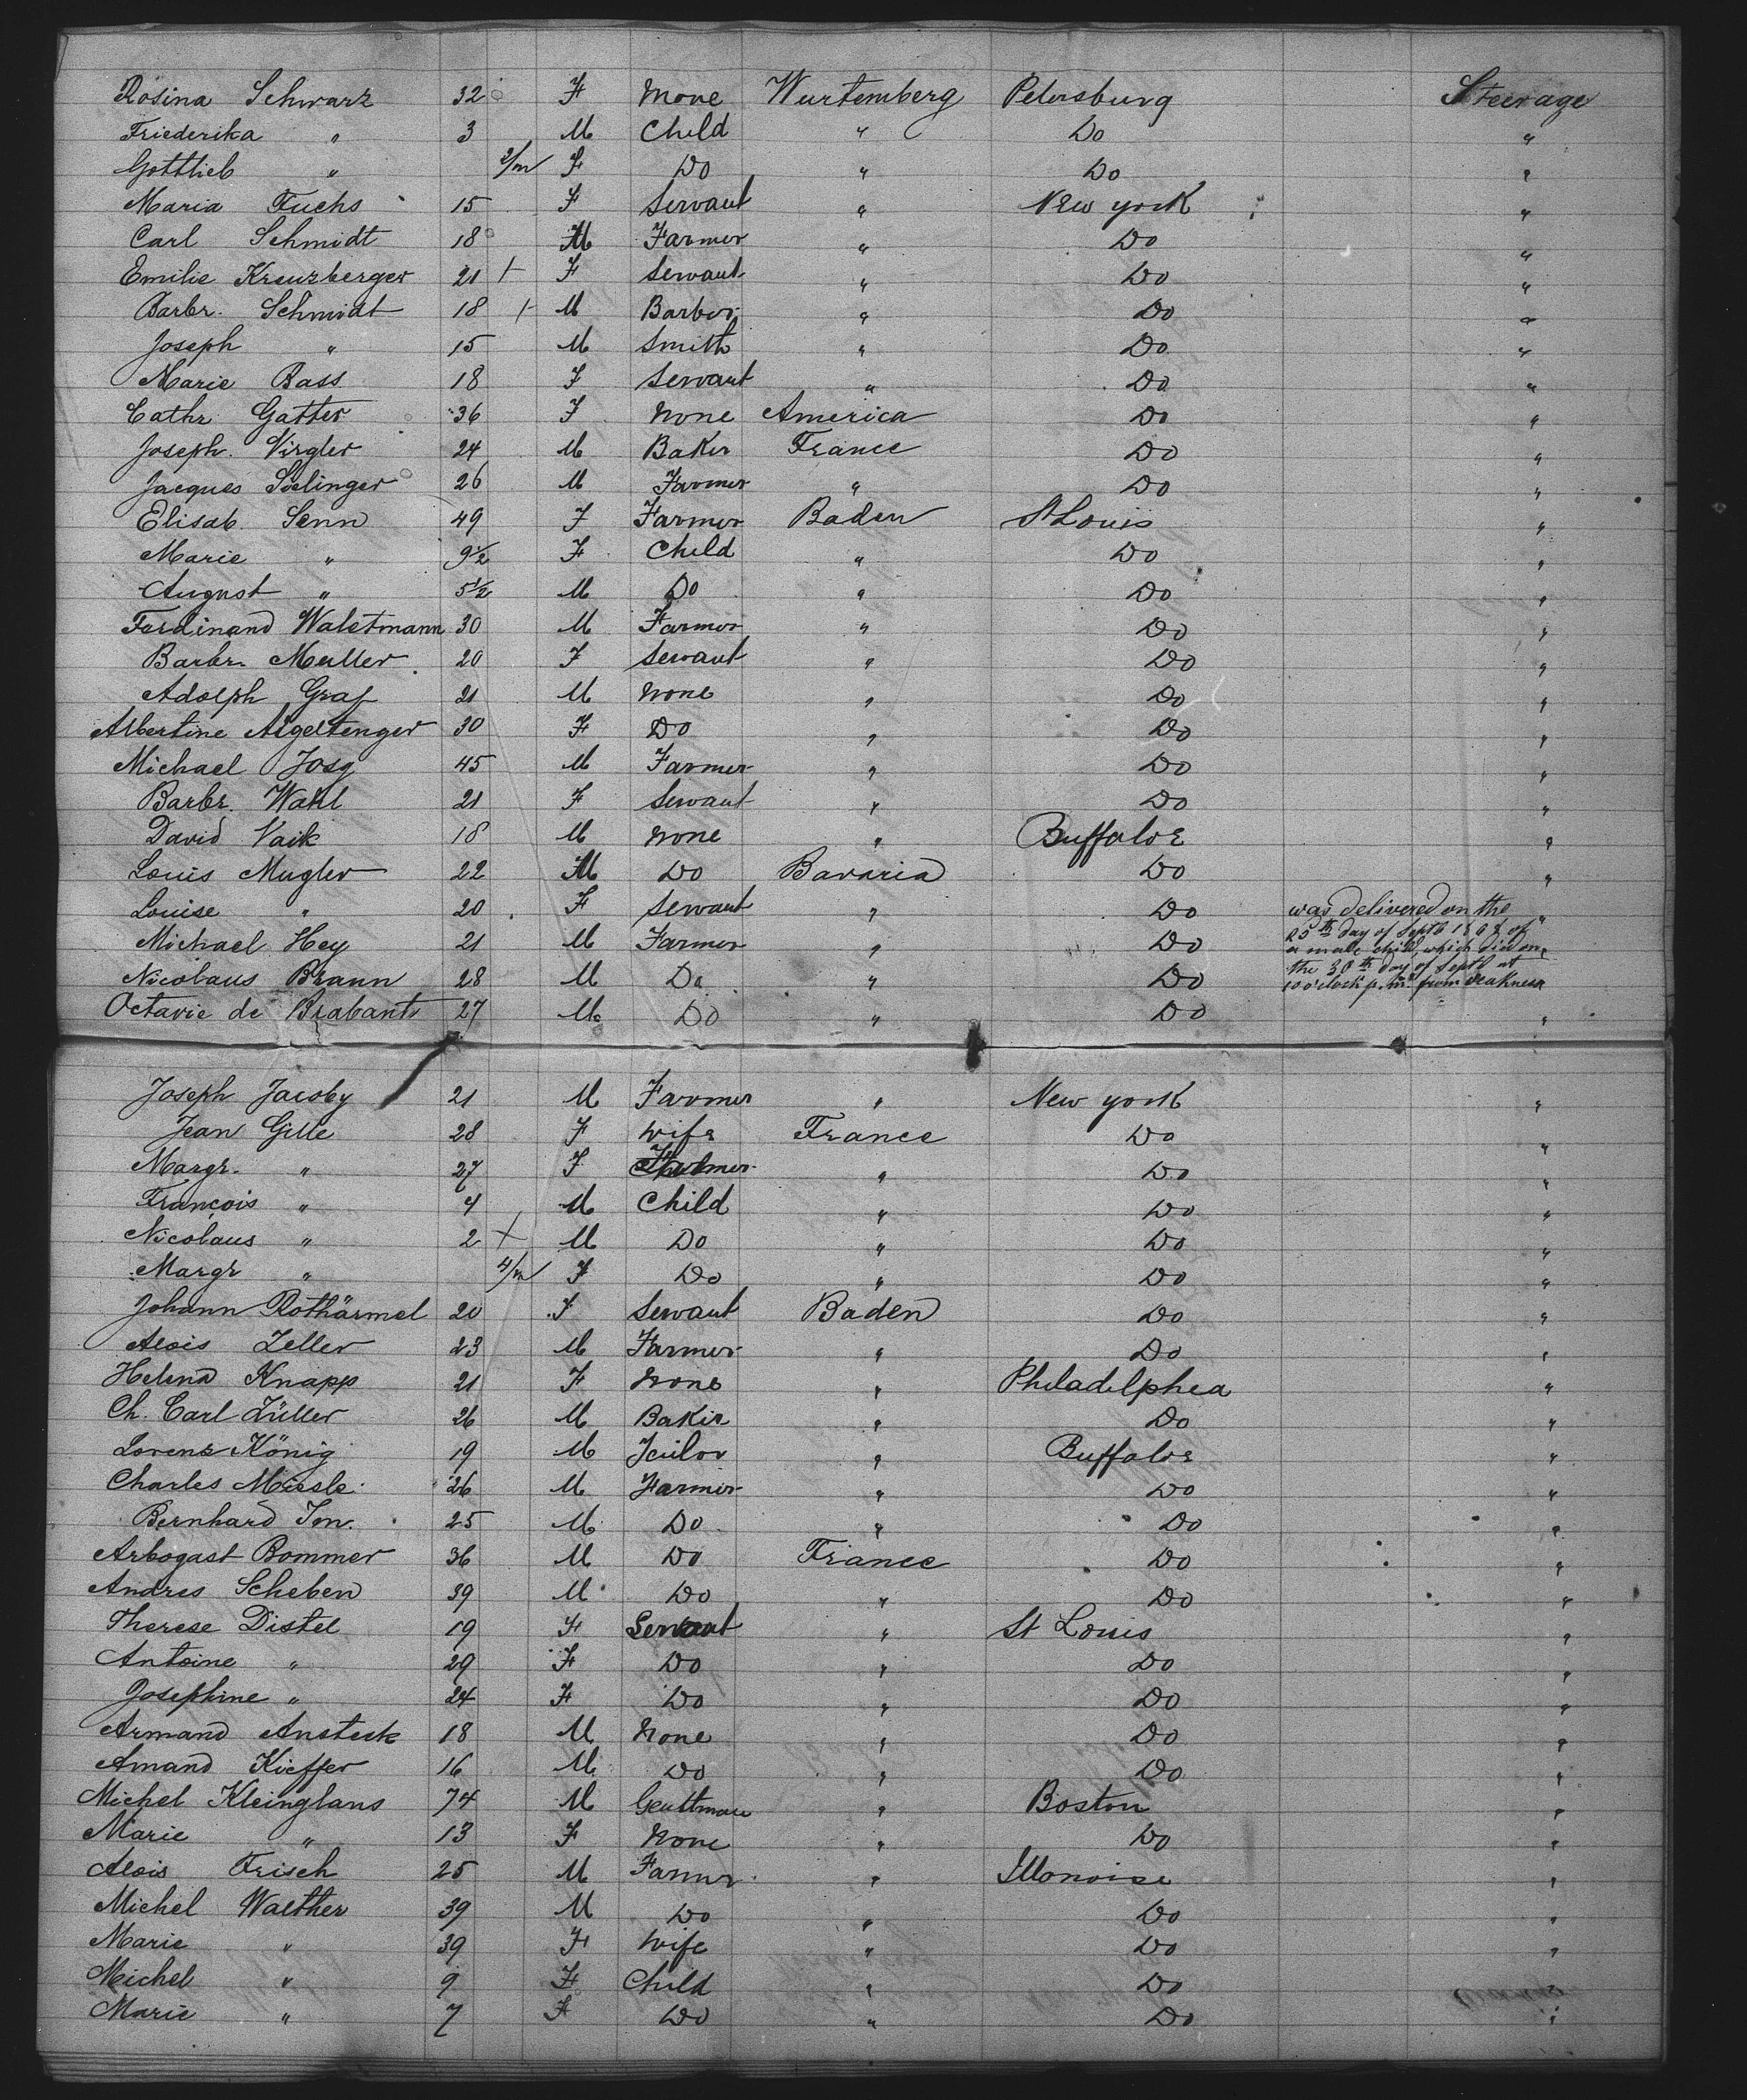 Rosina Schwarz 32 F None Wurtemberg Petersburg Steerage
Friederika " 3 M Child " Do "
Gottlieb " 2/m F Do " Do "
Maria Fuchs 15 F Servant " New york "
Carl Schmidt 18 M Farmer " Do "
Emilie Kreuzberger 21 F Servant " Do "
Barbr. Schmidt 18 M Barber " Do "
Joseph " 15 M Smith " Do "
Marie Bass 18 F Servant " Do "
Cathr Gatter 36 F None America Do "
Joseph Virgler 24 M Baker France Do "
Jacques 26 M Farmer " Do "
Elisab. Senn 49 F Farmer Baden St Louis "
Marie " 9½ F Child " Do "
August " 5½ M Do " Do "
Ferdinand Waletmann 30 M Farmer " Do "
Barbr. Muller 20 F Servant " Do "
Adolph Graf 21 M None " Do "
Albertine 30 F Do " Do "
Michael Josg 45 M Farmer " Do "
Barbr. Wahl 21 F Servant " Do "
David Vaik 18 M None " Buffaloe "
Louis Mugler 22 M Do Bavaria Do "
Louise " 20 F Servant " Do was delivered on the "
Michael Hey 21 M Farmer " Do 25th day of Septb 1868 of a male child, which died on "
Nicolaus Braun 28 M Do " Do the 30th day of Septb at 10 o'clock p.m. from weakness "
Octavie de Brabant 27 M Do " Do "
Joseph Jacoby 21 M Farmer " New york "
Jean Gille 28 F Wife France Do "
Margr. " 27 F " Do "
François " 4 M Child " Do "
Nicolaus " 2 M Do " Do "
Margr " 4/m F Do " Do "
Johann Rothärmel 20 F Servant Baden Do "
Alois Zeller 23 M Farmer " Do "
Helena Knapp 21 F None " Philadelphea "
Ch. Carl Züller 26 M Baker " Do "
Lorenz König 19 M " Buffaloe "
Charles Miesle 26 M Farmer " Do "
Bernhard 25 M Do " Do "
Arbogast Bommer 36 M Do France Do "
Andres Scheben 39 M Do " Do "
Therese Distel 19 F Servant " St Louis "
Antoine " 29 F Do " Do "
Josephine " 24 F Do " Do "
Armand Ansteck 18 M None " Do "
Amand Kieffer 16 M Do " Do "
Michel Kleinglans 74 M Gentlman " Boston "
Marie " 13 F None " Do "
Alois Frisch 25 M Farmer " Illonoise "
Michel Walther 39 M Do " Do "
Marie " 39 F Wife " Do "
Michel " 9 F Child " Do "
Marie " 7 F Do " Do "